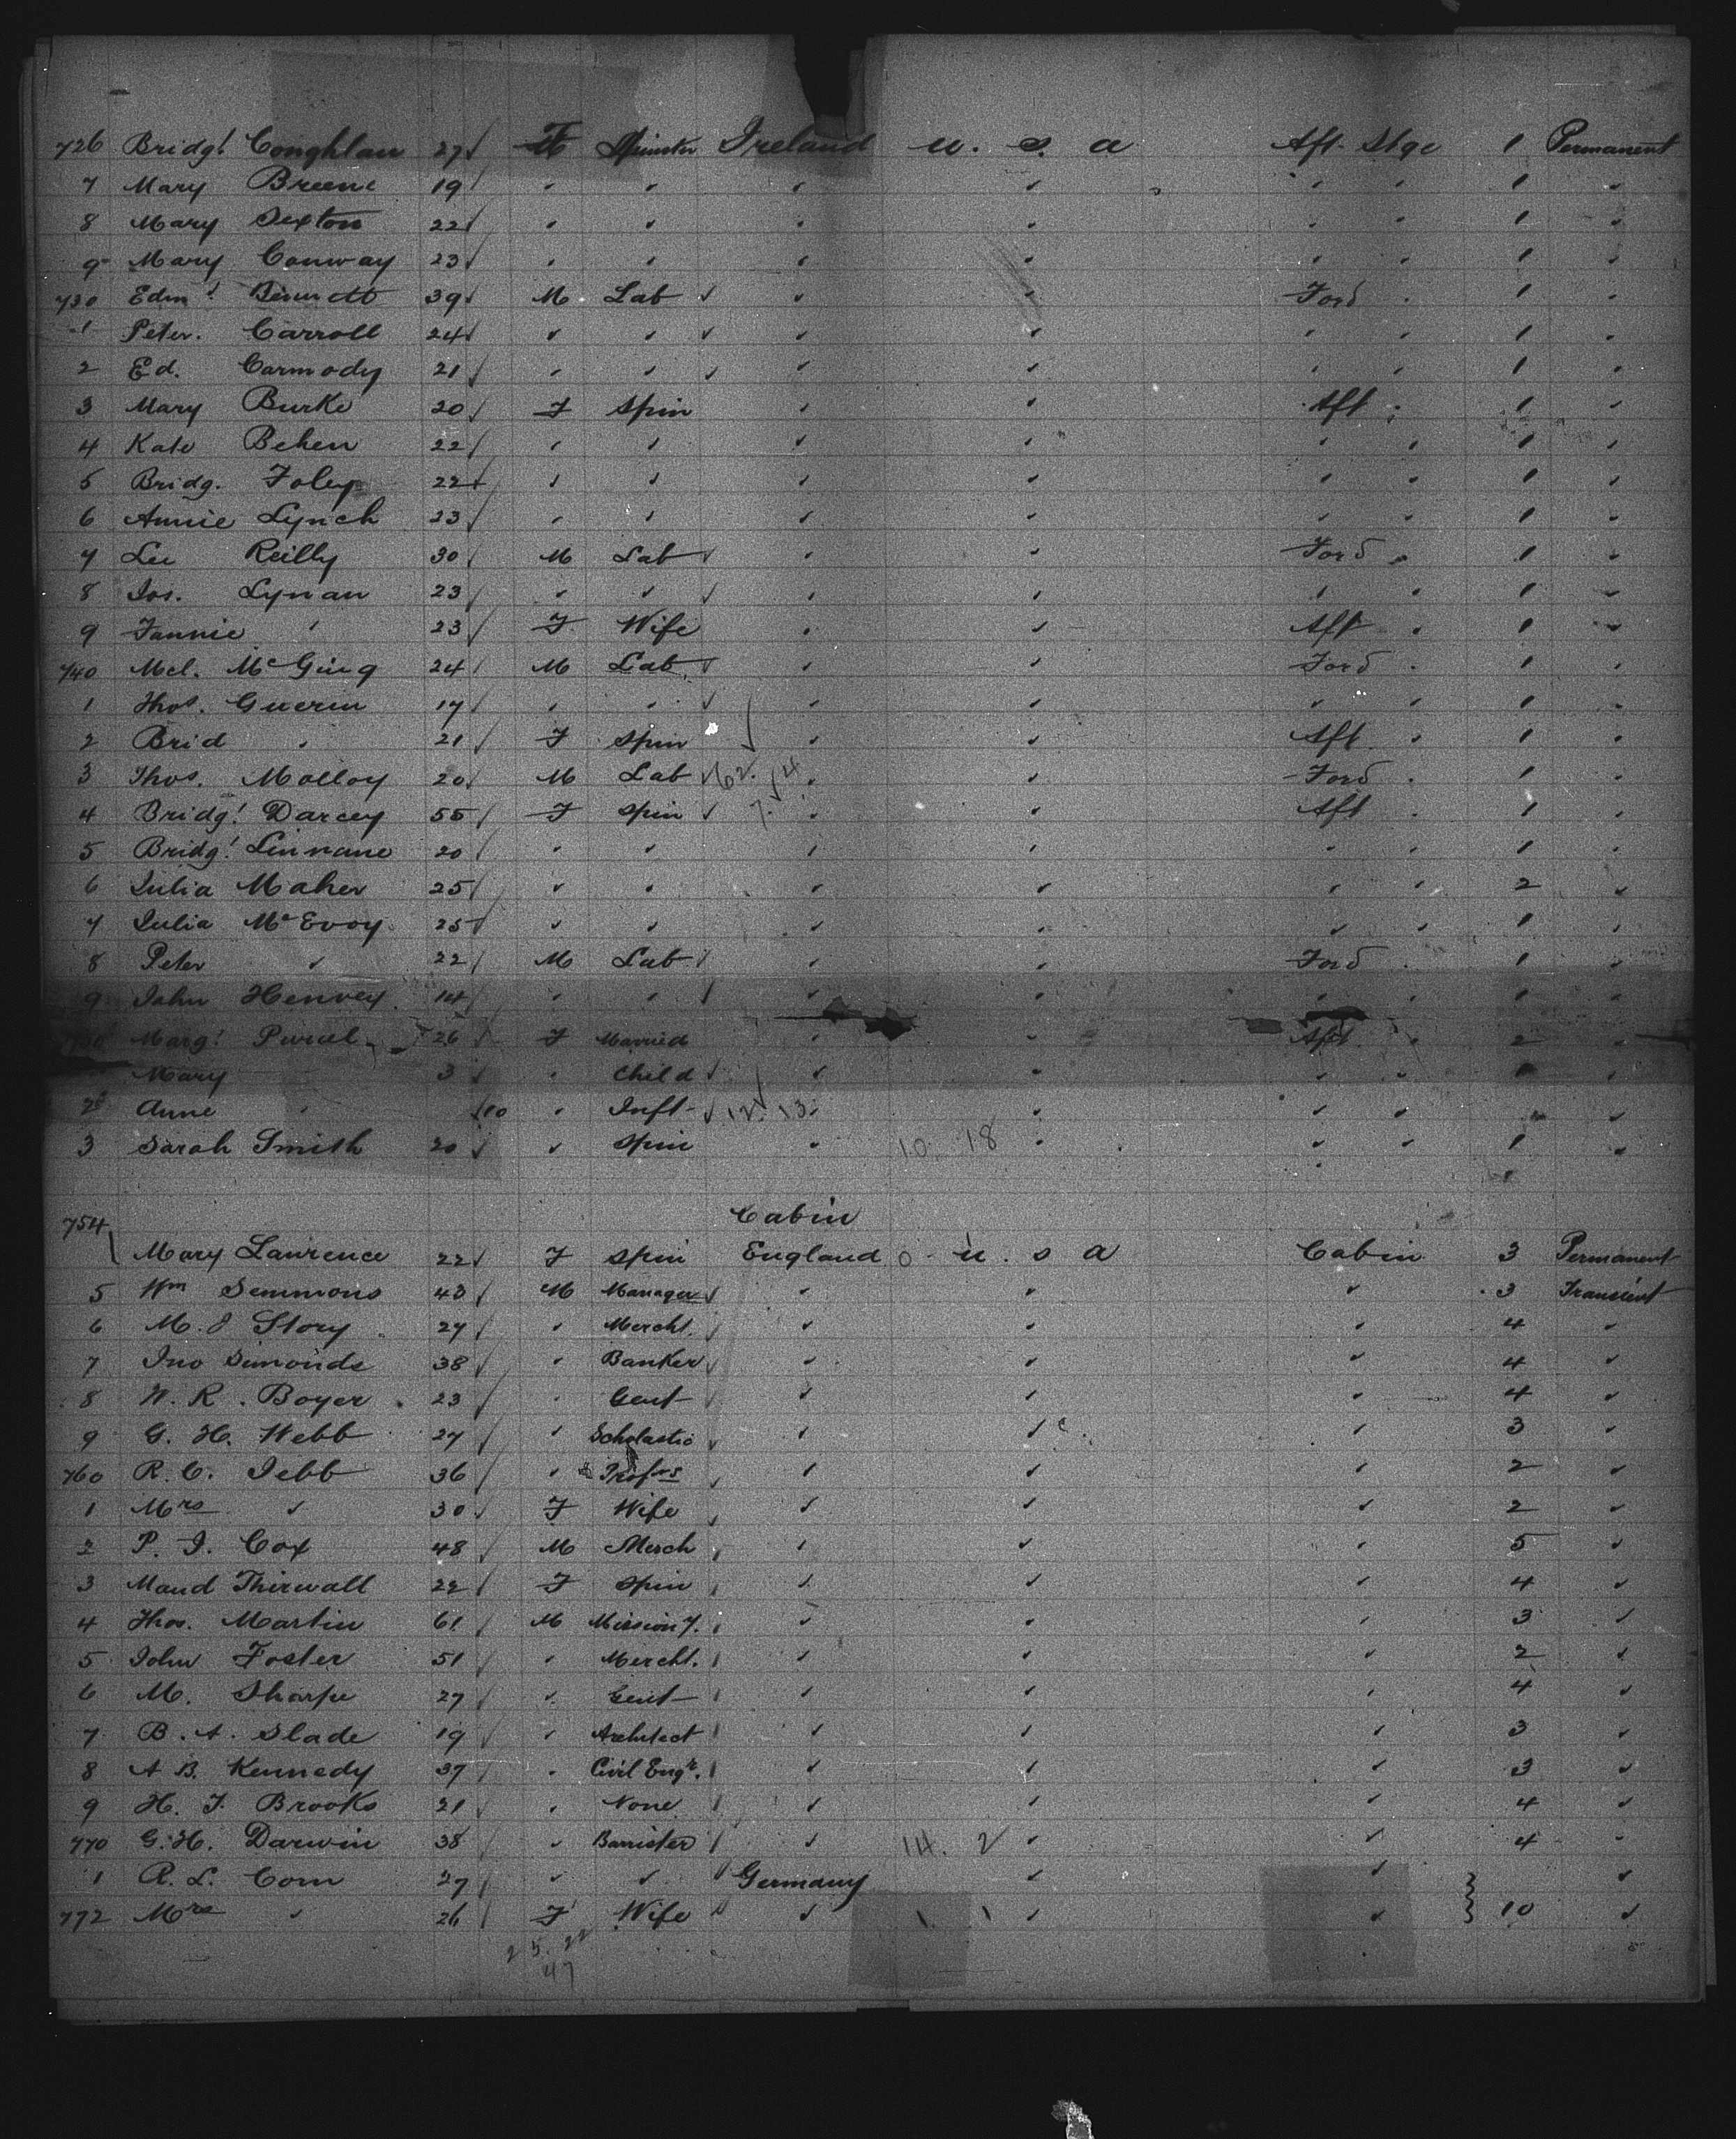 726 Bridgt Coughlan 27 F Spinster Ireland U. S. A Aft. Stge 1 Permanent
7 Mary Breene 19 1
8 Mary Sexton 22 1
9 Mary Conway 23 1
730 Edmd Bennett 39 M Lab Ford 1
1 Peter. Carroll 24 1
2 Ed. Carmody 21 1
3 Mary Burke 20 F Spin Aft 1
4 Kate Behen 22 1
5 Bridg. Foley 22 1
6 Annie Lynch 23 1
7 Lee Reilly 30 M Lab Ford 1
8 Jos. Lynan 23 1
9 Fannie 23 F Wife Aft 1
740 Mcl. McGing 24 M Lab Ford 1
1 Thos. Guerin 17 1
2 Brid 21 F Spin Aft 1
3 Thos. Molloy 20 M Lab 62. 4 Ford 1
4 Bridgt Darcey 55 F Spin 7. Aft 1
5 Bridgt Linnane 20 1
6 Julia Maher 25 2
7 Julia McEvoy 25 1
8 Peter 22 M Lab Ford 1
9 John Henvey 14 1
750 Margt 26 F Married Aft 2
Mary 3 Child
2 Anne 10 Inft 12. 13
3 Sarah Smith 20 Spin 10. 18 1
Cabin
754 Mary Lawrence 22 F Spin England U. S A Cabin 3 Permanent
5 Wm Semmons 43 M Manager 3 Transient
6 M. J Story 27 Mercht. 4
7 Jno Simonds 38 Banker 4
8 W. R. Boyer 23 Gent 4
9 G. H. Webb 27 Scholastic 3
760 R. C. Jebb 36 Profrs 2
1 Mrs 30 F Wife 2
2 P. J. Cox 48 M Merch 5
3 Maud Thirwall 22 F Spin 4
4 Thos. Martin 61 M Missiony. 3
5 John Foster 51 Mercht. 2
6 M. Sharpe 27 Gent 4
7 B. A. Slade 19 Architect 3
8 A B. Kennedy 37 Civil Engr. 3
9 H. J. Brooks 21 None 4
770 G. H. Darwin 38 Barrister 14. 2 4
1 R. L. Corn 27 Germany
772 Mrs 26 F Wife 1. 1 10
25. 22
47